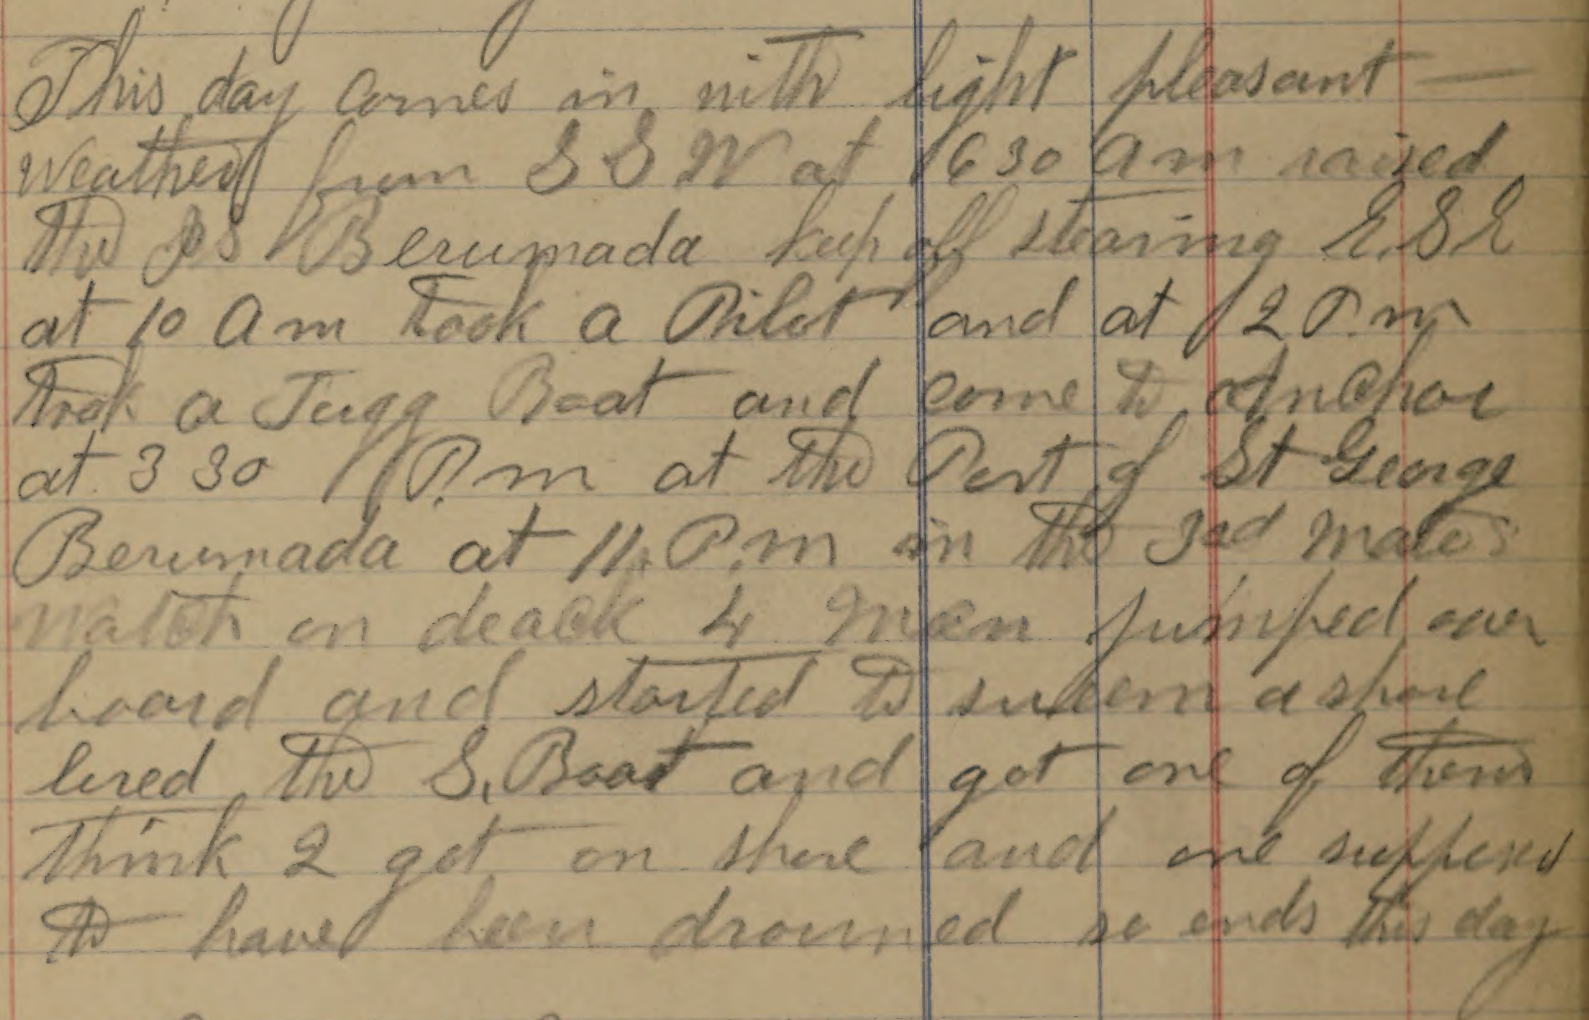 This day comes in with light pleasant —
weather from S S W at 6 30 a m raised
the Berumada keep off stearing E.S.E
at 10 a m took a Pilot and at 12 P.m
took a Tugg Boat and come to Anchor
at 3 30 P.m at the Port of St George
Berumada at 11 P.m in the 3rd Mates
watch on deack 4 men jumped over
board and started to sweem a shore
lored the S. Boat and got one of them
think 2 got on shore and one supposed
to have been drowned so ends this day